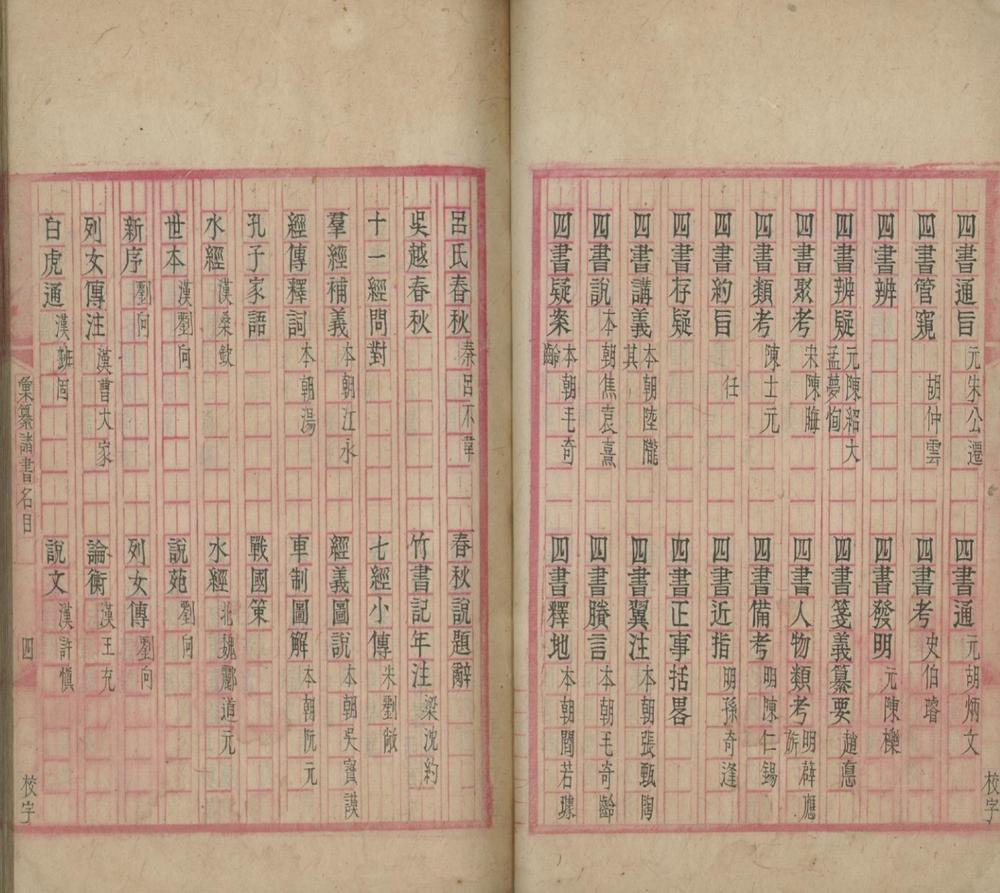 四書通旨 元朱公遷 四書通 元胡炳文
四書管窺 胡仲雲 四書考 史伯璿
四書辨 四書發明 元陳櫟
四書辨疑 元陳紹大 孟夢恂 四書箋義纂要 趙悳
四書聚考 宋陳晦 四書人物類考 明薛應旂
四書類考 陳士元 四書備考 明陳仁錫
四書約旨 任 四書近指 明孫奇逢
四書存疑 四書正事括畧
四書講義 本朝陸隴其 四書翼注 本朝張甄陶
四書說 本朝焦袁熹 四書賸言 本朝毛奇齡
四書疑案 本朝毛奇齡 四書釋地 本朝閻若璩
校字
呂氏春秋 秦呂不韋 春秋說題辭
吳越春秋 竹書記年注 梁沈約
十一經問對 七經小傳 宋劉敞
羣經補義 本朝江永 經義圖說 本朝吳寶謨
經傳釋詞 本朝湯 車制圖解 本朝阮元
孔子家語 戰國策
水經 漢桑欽 水經 北魏酈道元
世本 漢劉向 說苑 劉向
新序 劉向 列女傳 劉向
列女傳注 漢曹大家 論衡 漢王充
白虎通 漢班固 說文 漢許慎
彙纂諸書名目 四 校字